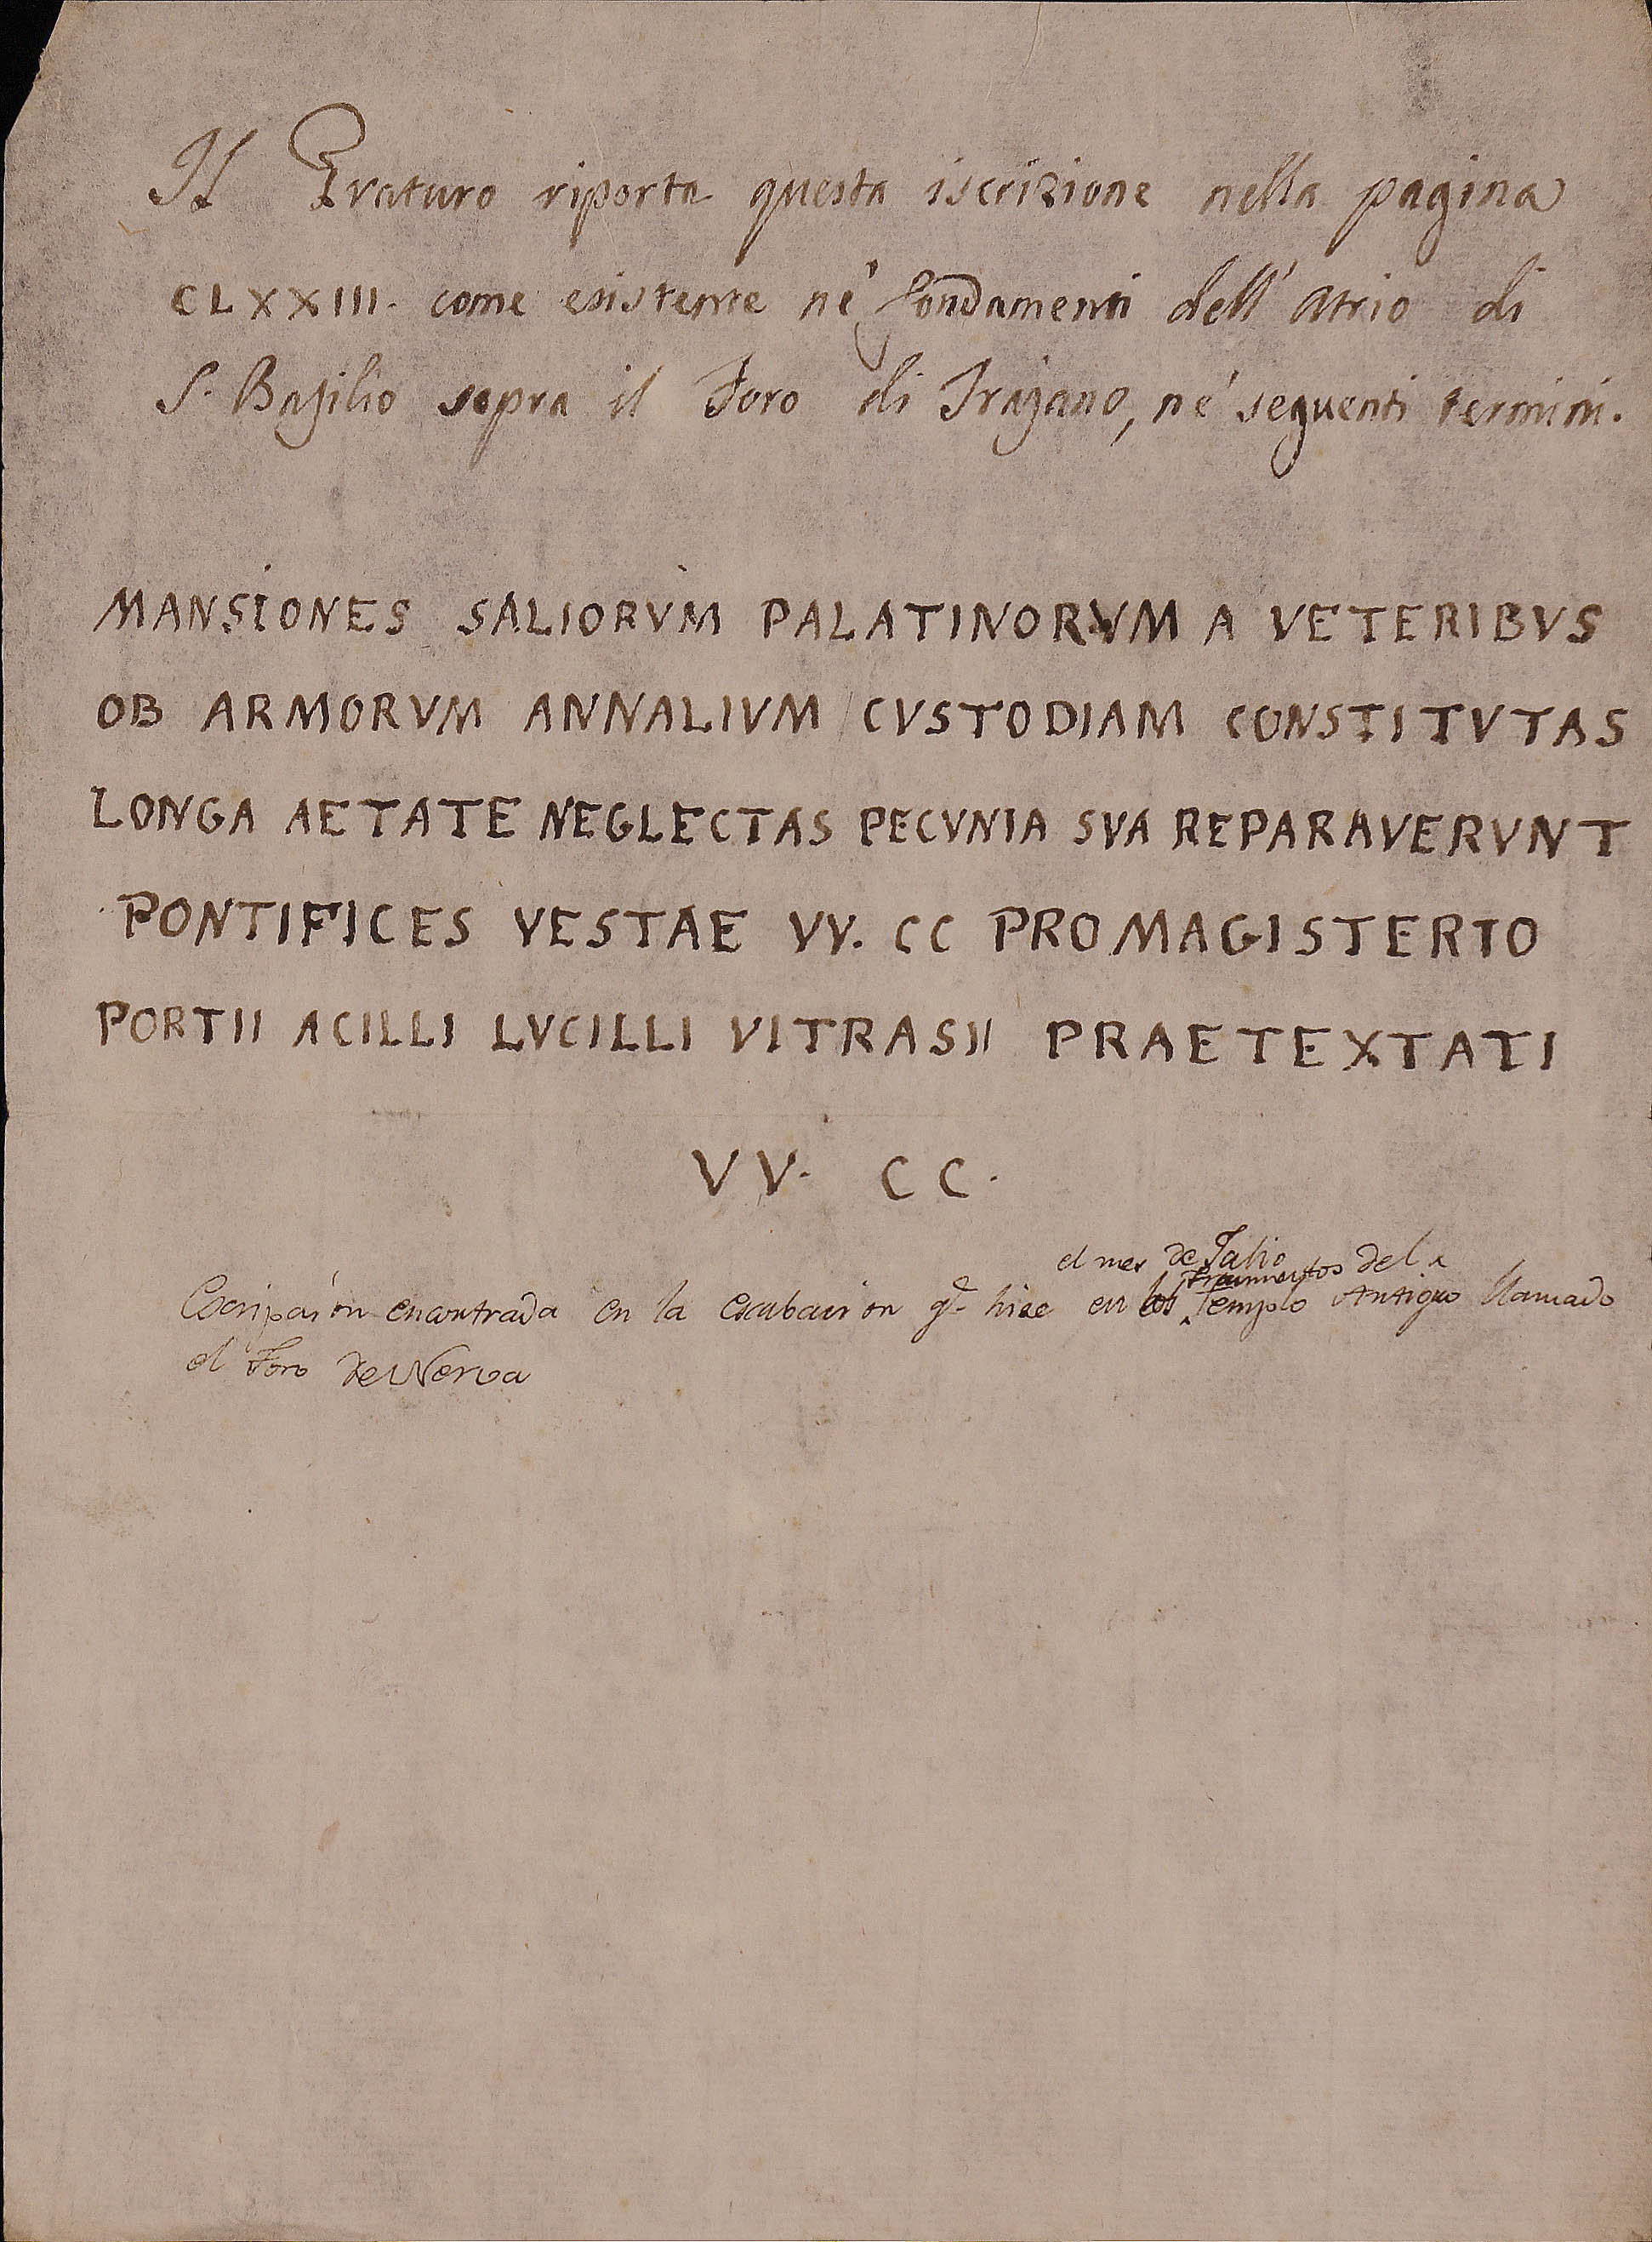 Il Gruturo riporta questa iscrizione nella pagina
CLXXIII. come esistente ne' fondamenti dell' Atrio di
S. Basilio sopra il Foro di Trajano, ne' seguenti termini.
MANSIONES SALIORVM PALATINORVM A VETERIBVS
OB ARMORVM ANNALIVM CVSTODIAM CONSTITVTAS
LONGA AETATE NEGLECTAS PECVNIA SVA REPARAVERVNT
PONTIFICES VESTAE VV. CC PROMAGISTERIO
PORTII ACILLI LVCILLI VITRASII PRAETEXTATI
VV. CC.
el mes de Julio
fracmentos del
Escripcion encontrada en la escubacion qe. hice en los Templo Antiguo llamado
el Foro de Nerva